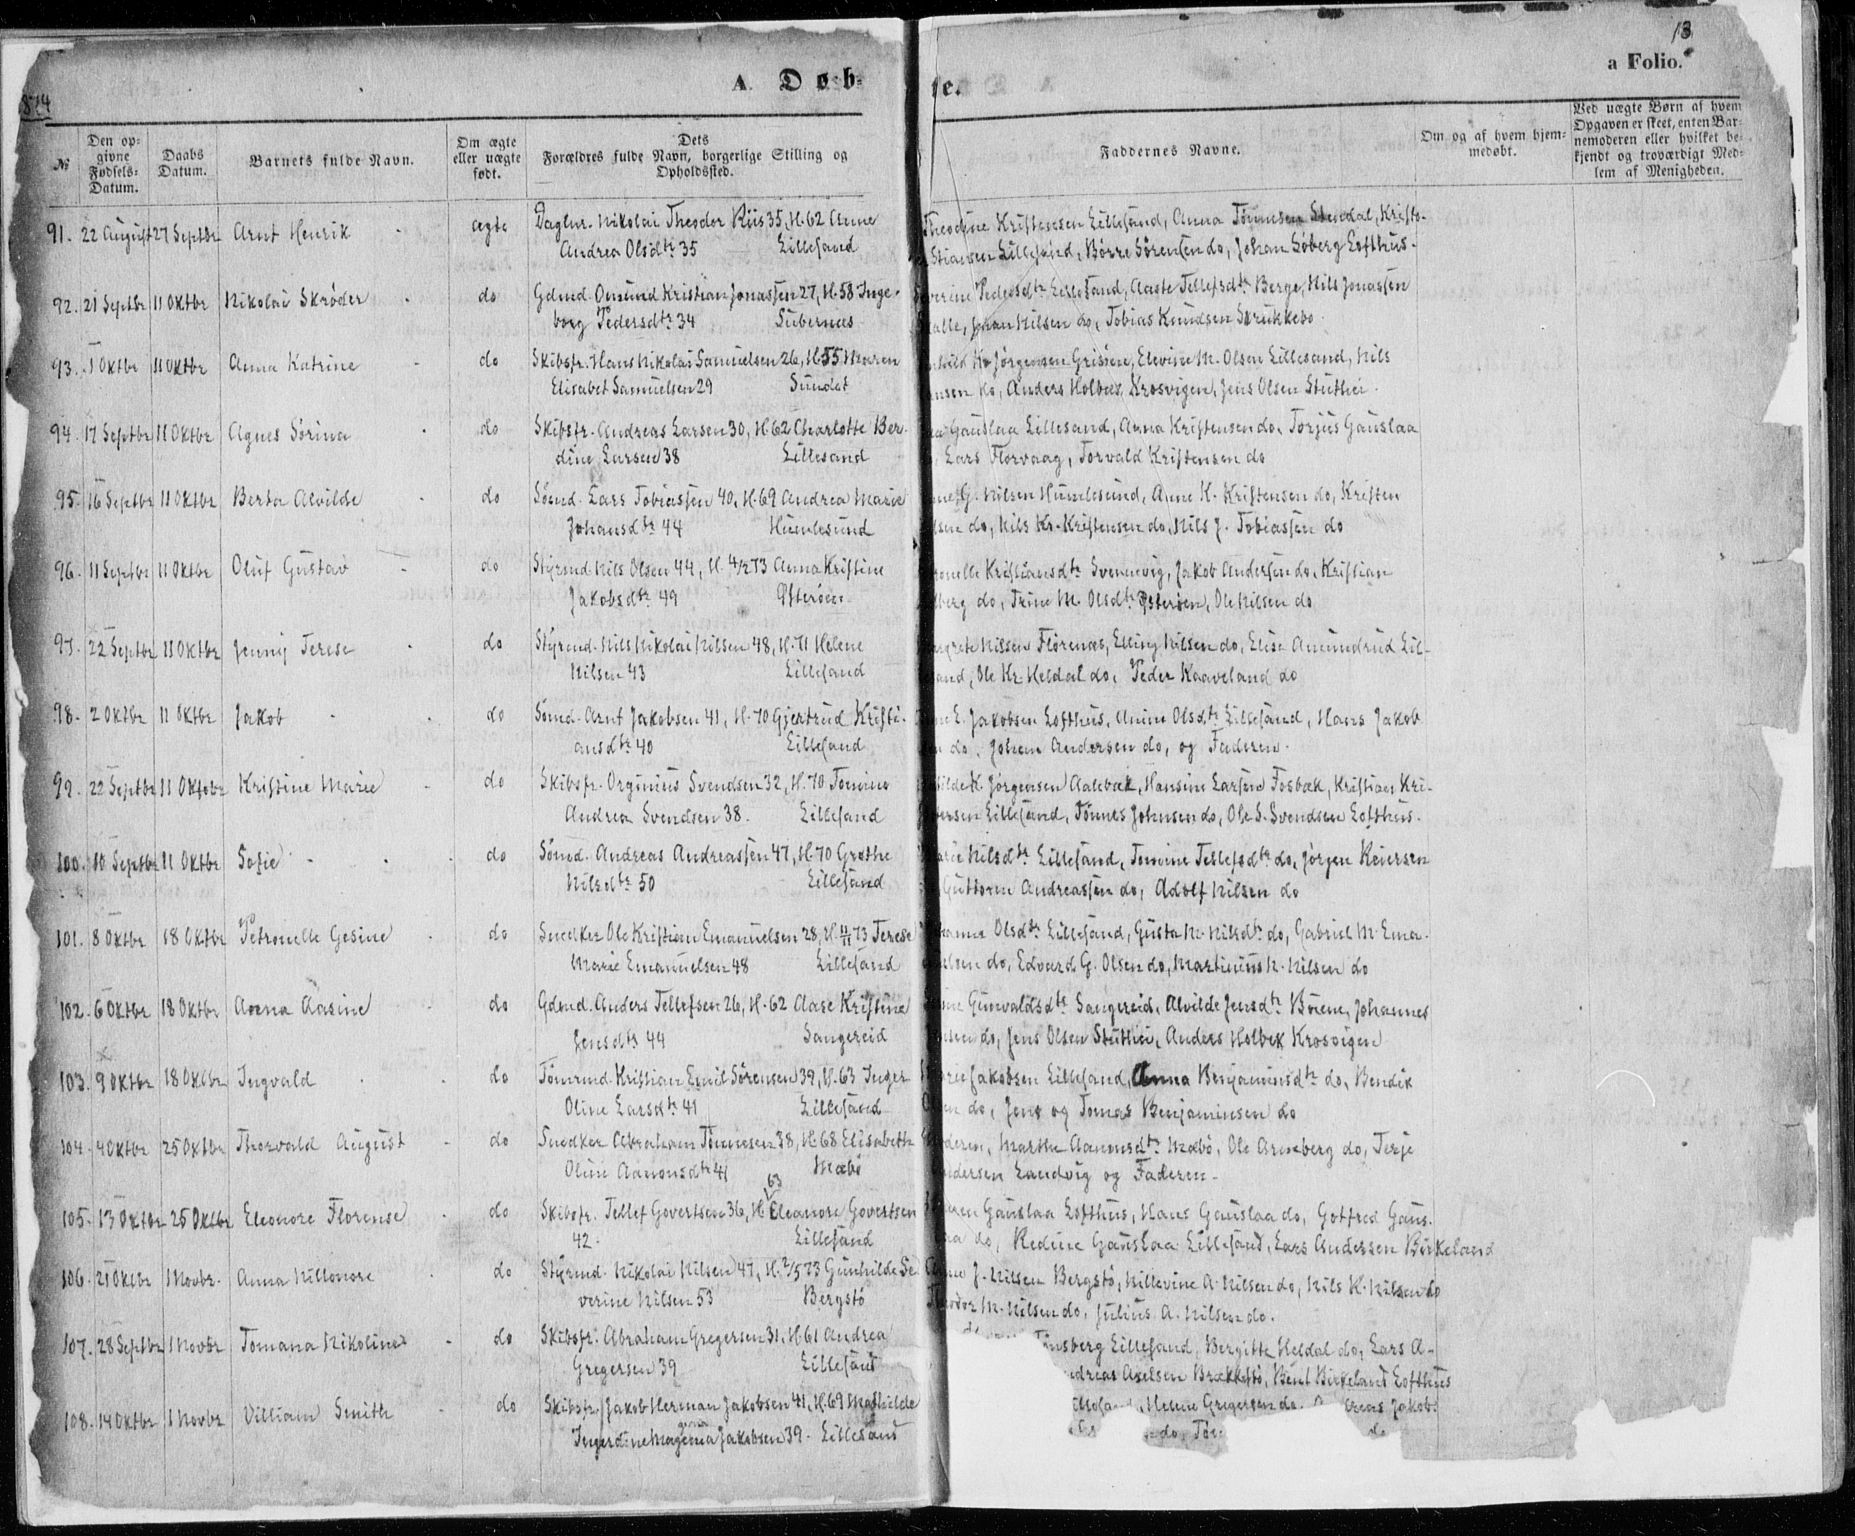 13
1874
A Døb-
se.
a Folio.
№
Den op-
givne
Fødsels-
Datum.
Daabs
Datum.
Barnets fulde Navn.
Om ægte
eller uægte
født.
Dets
Forældres fulde Navn, borgerlige Stilling og
Opholdssted.
Faddernes Navne.
Om og af hvem hjem-
medøbt.
Ved uægte Børn af hvem
Opgaven er skeet, enten Bar-
nemoderen eller hvilket be-
kjendt og troværdigt Med-
lem af Menigheden.
91. 22 August 27 Septbr Arnt Henrik ægte Daglnr. Nikolai Theodor Riis 35, H. 62 Anne
Andrea Olsdtr 35 Lillesand
Theodine Kristensen Lillesand, Anna Tønnesen Stendal, Krist-
Stiansen Lillesand, Børre Sørensen do, Johan Søberg Lofthus.
92. 21 Septbr 11 Oktbr Nikolai Skrøder do Gdmd. Omund Kristian Jonassen 27, H. 58 Inge-
borg Pedersdtr 34 Subernæs
verine Pedersdtr Lillesand, Aaste Tellefsdtr Berge, Nils Jonassen
alle, Johan Nilsen do, Tobias Knudsen Strukkebo.
93. 1 Oktbr 11 Oktbr Anna Katrine do Skibsfr. Hans Nikolai Samuelsen 26, H. 55 Maren
Elisabet Samuelsen 29 Sundet
Jørgensen Grisøen, Elevine M. Olsen Lillesand, Nils
ansen do, Anders Holbek Krosvigen, Jens Olsen Stuthei.
94. 17 Septbr 11 Oktbr Agnes Sørina do Skibsfr. Andreas Larsen 30, H. 62 Charlotte Ber-
dine Larsen 38 Lillesand
Gauslaa Lillesand, Anna Kristensen do, Torjus Gauslaa
Lars Florvaag, Torvald Kristensen do
95. 16 Septbr 11 Oktbr Berta Alvilde do Sømd. Lars Tobiassen 40, H. 69 Andrea Marie
Johansdtr 44 Humlesund
G. Nilsen Humlesund, Anne K. Kristensen do, Kristen
lsen do, Nils Kr. Kristensen do, Nils J. Tobiassen do
96. 11 Septbr 11 Oktbr Oluf Gustav do Styrmd. Nils Olsen 44, H. 4/2 73 Anna Kristine
Jakobsdtr 49 Østerøen
ronelle Kristiansdtr Svennevig, Jakob Andersen do, Kristian
lberg do, Trine M. Olsdtr Østerøen, Ole Nilsen do
97. 22 Septbr 11 Oktbr Jenny Terese do Styrmd. Nils Nikolai Nilsen 48, H. 71 Helene
Nilsen 43 Lillesand
grete Nilsen Florenæs, Elling Nilsen do, Elise Amundrud Lil-
sand, Ole Kr. Heldal do, Peder Kaaveland do
98. 2 Oktbr 11 Oktbr Jakob do Sømd. Arnt Jakobsen 41, H. 70 Gjertrud Kristi-
ansdtr 40 Lillesand
E. Jakobsen Lofthus, Anine Olsdtr Lillesand, Hans Jakob
do, Johan Andersen do, og Faderen.
99. 22 Septbr 11 Oktobr Kristine Marie do Skibsfr. Orginius Svendsen 32, H. 70 Tomine
Andrea Svendsen 38. Lillesand
hilde K. Jørgensen Aalebæk, Hansine Larsen Fosbæk, Kristian Kri-
stensen Lillesand, Tønnes Johnsen do, Ole S. Svendsen Lofthus.
100. 10 Septbr 11 Oktbr Sofie do Sømd. Andreas Andreassen 47, H. 70 Grethe
Nilsdtr 50 Lillesand
arie Nilsdtr Lillesand, Tomine Tellefsdtr do, Jørgen Reiersen
Guttorm Andreassen do, Adolf Nilsen do
101. 8 Oktbr 18 Oktbr Petronelle Gesine do Snedker Ole Kristian Emanuelsen 28, H. 73 Terese
Marie Emanuelsen 48 Lillesand
hanna Olsdtr Lillesand, Gusta M. Nilsdtr do, Gabriel M. Ema-
nuelsen do, Edvard G. Olsen do, Martinius N. Nilsen do
102. 6 Oktbr 18 Oktbr Anna Aasine do Gdmd. Anders Tellefsen 26, H. 62 Aase Kristine
Jensdtr 44 Sangereid
Gunvaldsdtr Sangereid, Alvilde Jensdtr Børene, Johannes
nsen do, Jens Olsen Stuthei, Anders Holbek Krosvigen
103. 9 Oktbr 18 Oktbr Ingvald do Tømrmd. Kristian Emil Sørensen 39, H. 63 Inger
Oline Larsdtr 41 Lillesand
Marie Jakobsen Lillesand, Anna Benjaminsdtr do, Bendik
Olsen do, Jens og Tomas Benjaminsen do
104. 4 Oktbr 25 Oktbr Thorvald August do Snedker Abraham Tønnesen 38, H. 68 Elisabeth
Oline Aanonsdtr 41 Mæbø
oderen, Marthe Aanonsdtr Mæbø, Ole Arneberg do, Terje
Andersen Landvig og Faderen.
63
105. 13 Oktbr 25 Oktbr Eleonore Florense do Skibsfr. Tellef Govertsen 36, H. Eleanore Govertsen
42. Lillesand
aren Gauslaa Lofthus, Hans Gauslaa do, Gotfred Gaus-
laa do, Redine Gauslaa Lillesand, Lars Andersen Birkeland
106. 21 Oktbr 1 Novbr. Anna Nillonore do Styrmd. Nikolai Nilsen 47, H. 2/5 73 Gunhilde Se-
verine Nilsen 53 Bergstø
Anne J. Nilsen Bergstø, Nillevine A. Nilsen do, Nils K. Nilsen do
Theodor M. Nilsen do, Julius A. Nilsen do.
107. 28 Septbr 1 Novbr Tomana Nikoline do Skibsfr. Abraham Gregersen 31, H. 61 Andrea
Gregersen 39 Lillesand
Tønsberg Lillesand, Bergitte Heldal do, Lars A-
ndreas Axelsen Brækkestø, Bent Birkeland Lofthus
108. 14 Oktbr 1 Novbr Villiam Smith do Skibsfr. Jakob Herman Jakobsen 41, H. 69 Mathilde
Ingerdine Magenia Jakobsen 39. Lillesand
Lillesand, Helene Gregersen do. Andreas Jakob-
do, Tør- do